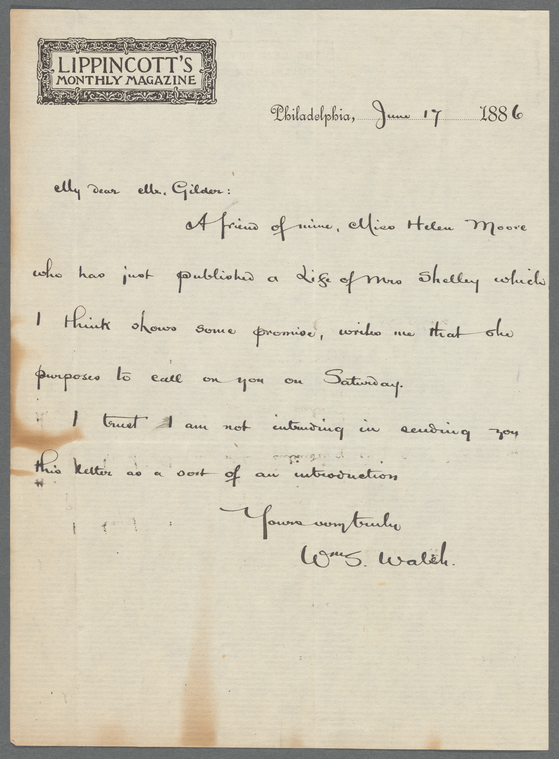 LIPPINCOTT'S
MONTHLY MAGAZINE
Philadelphia, June 17 1886
My dear Mr. Gilder:
A friend of mine, Miss Helen Moore
who has just published a Life of Mrs Shelley which
I think shows some promise, writes me that she
purposes to call on you on Saturday.
I trust I am not intruding in sending you
this letter as a sort of an introduction
Yours very truly
Wm S. Walsh.